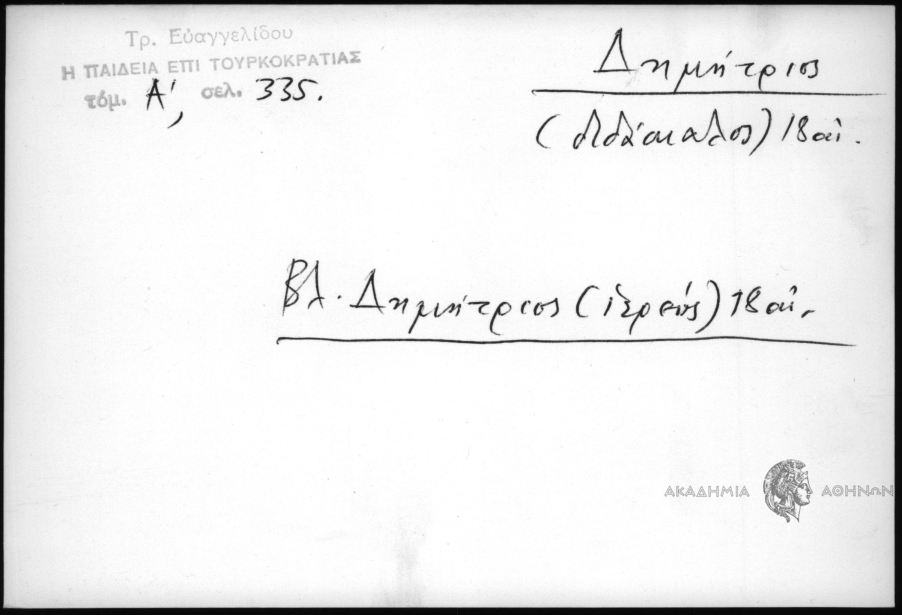 Τρ. Εὐαγγελίδου
Η ΠΑΙΔΕΙΑ ΕΠΙ ΤΟΥΡΚΟΚΡΑΤΙΑΣ
τόμ. Α', σελ. 335.
Δημήτριος
(διδάσκαλος) 18 αἰ.
Βλ. Δημήτριος (ἱερεύς) 18 αἰ.
ΑΚΑΔΗΜΙΑ ΑΘΗΝΩΝ